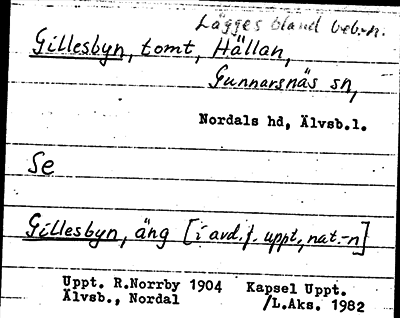 Lägges bland beb.-n.
Gillesbyn, tomt, Hällan,
Gunnarsnäs sn,
Nordals hd, Älvsb.l.
Se
Gillesbyn, äng [i avd. f. uppt. nat.-n]
Uppt. R.Norrby 1904 Kapsel Uppt.
Älvsb., Nordal /L.Aks. 1982